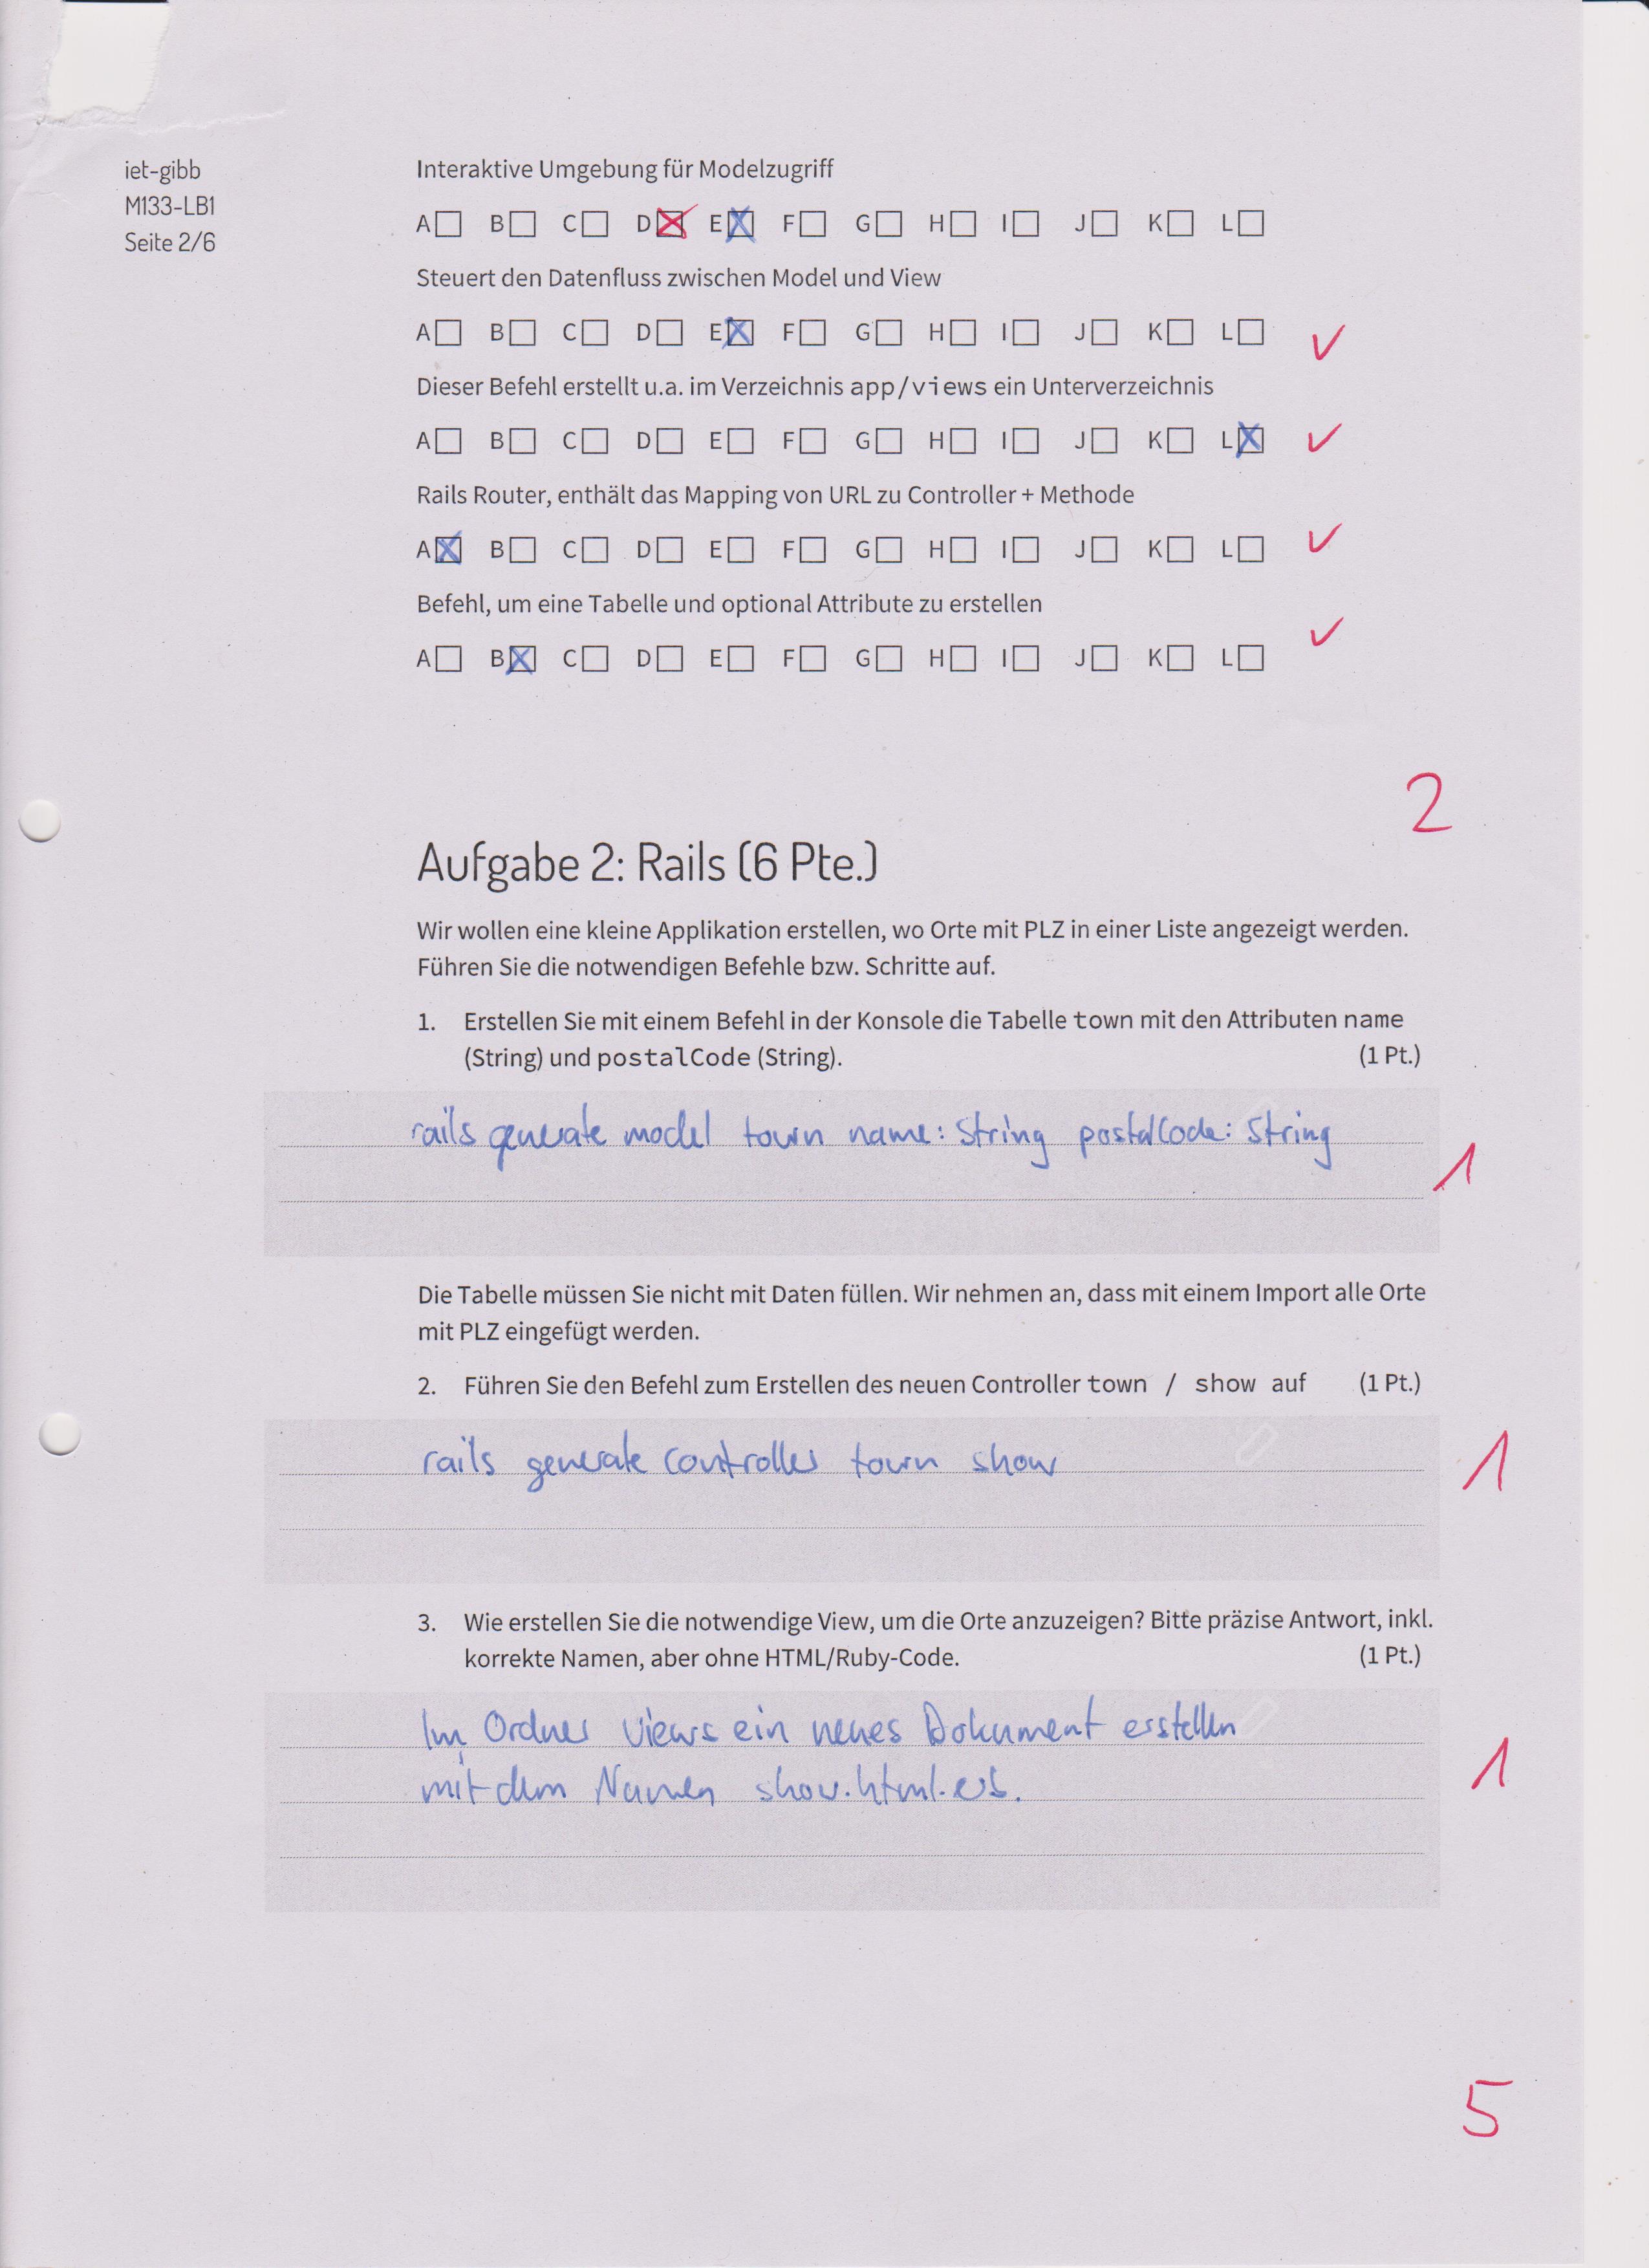 iet-gibb
M133-LB1
Seite 2/6
Interaktive Umgebung für Modelzugriff
A B C D E F G H I J K L
Steuert den Datenfluss zwischen Model und View
A B C D E F G H I J K L
Dieser Befehl erstellt u.a. im Verzeichnis app/views ein Unterverzeichnis
A B C D E F G H I J K L
Rails Router, enthält das Mapping von URL zu Controller + Methode
A B C D E F G H I J K L
Befehl, um eine Tabelle und optional Attribute zu erstellen
A B C D E F G H I J K L
2
Aufgabe 2: Rails (6 Pte.)
Wir wollen eine kleine Applikation erstellen, wo Orte mit PLZ in einer Liste angezeigt werden.
Führen Sie die notwendigen Befehle bzw. Schritte auf.
1. Erstellen Sie mit einem Befehl in der Konsole die Tabelle town mit den Attributen name
(String) und postalCode (String). (1 Pt.)
rails generate model town name: String postalCode: String
1
Die Tabelle müssen Sie nicht mit Daten füllen. Wir nehmen an, dass mit einem Import alle Orte
mit PLZ eingefügt werden.
2. Führen Sie den Befehl zum Erstellen des neuen Controller town / show auf (1 Pt.)
rails generate controller town show
1
3. Wie erstellen Sie die notwendige View, um die Orte anzuzeigen? Bitte präzise Antwort, inkl.
korrekte Namen, aber ohne HTML/Ruby-Code. (1 Pt.)
Im Ordner views ein neues Dokument erstellen
mit dem Namen show.html.erb.
1
5